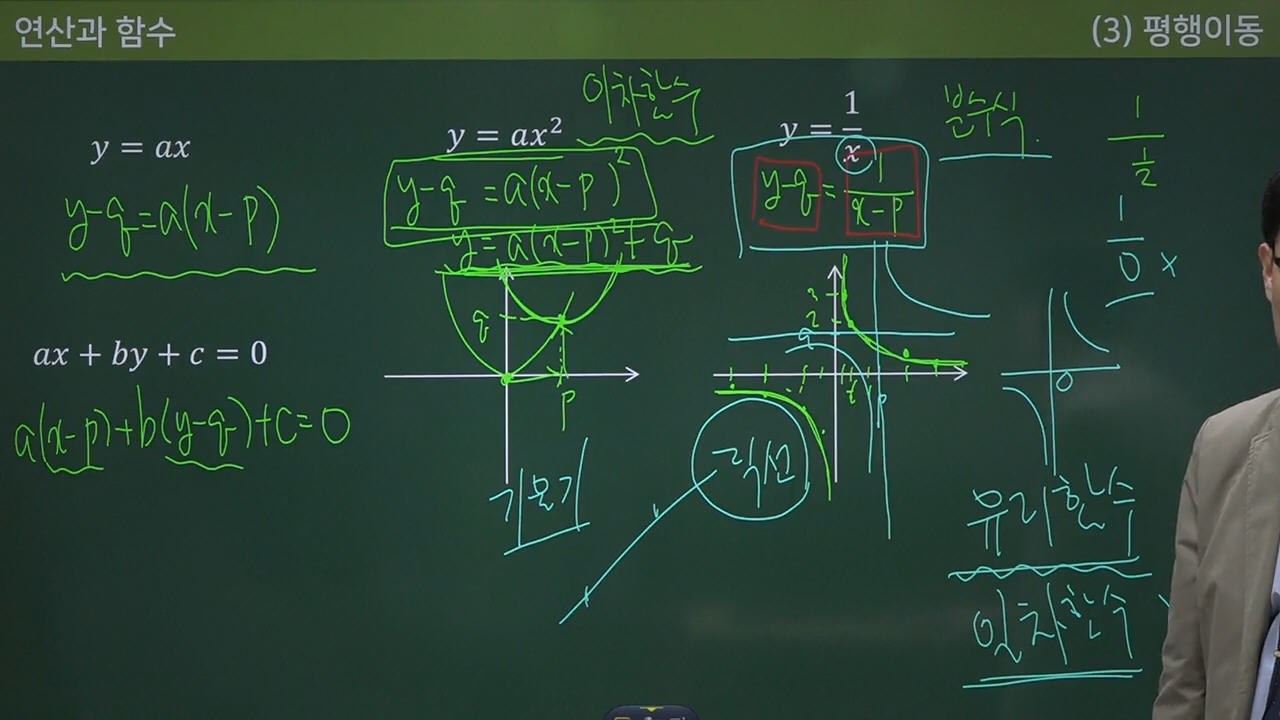 연산과 함수
(3) 평행이동
y = ax
y-q=a(x-p)
ax + by + c = 0
a(x-p)+b(y-q)+c=0
이차함수
y = ax²
y-q=a(x-p)²
y=a(x-p)²+q
q
p
기울기
y = 1/x
y-q=1/(x-p)
분수식.
3
2
q
p
직선
1/(1/2)
1/0 x
0
유리함수
일차함수